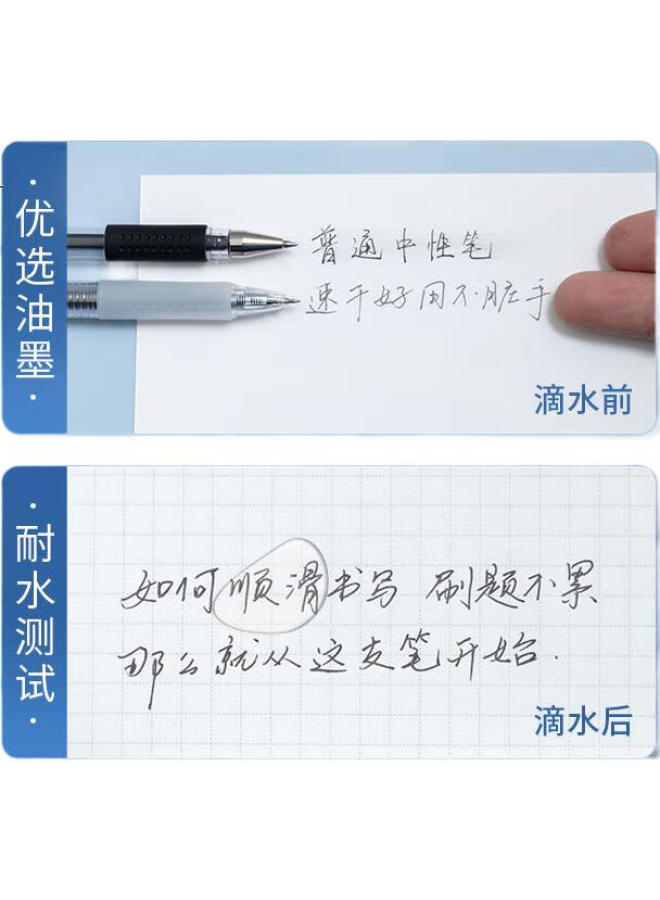 ·优选油墨·
普通中性笔
速干好用不脏手
滴水前
·耐水测试·
如何顺滑书写 刷题不累
那么就从这支笔开始.
滴水后